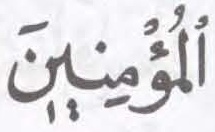 اُلْمُؤْمِنِينَ